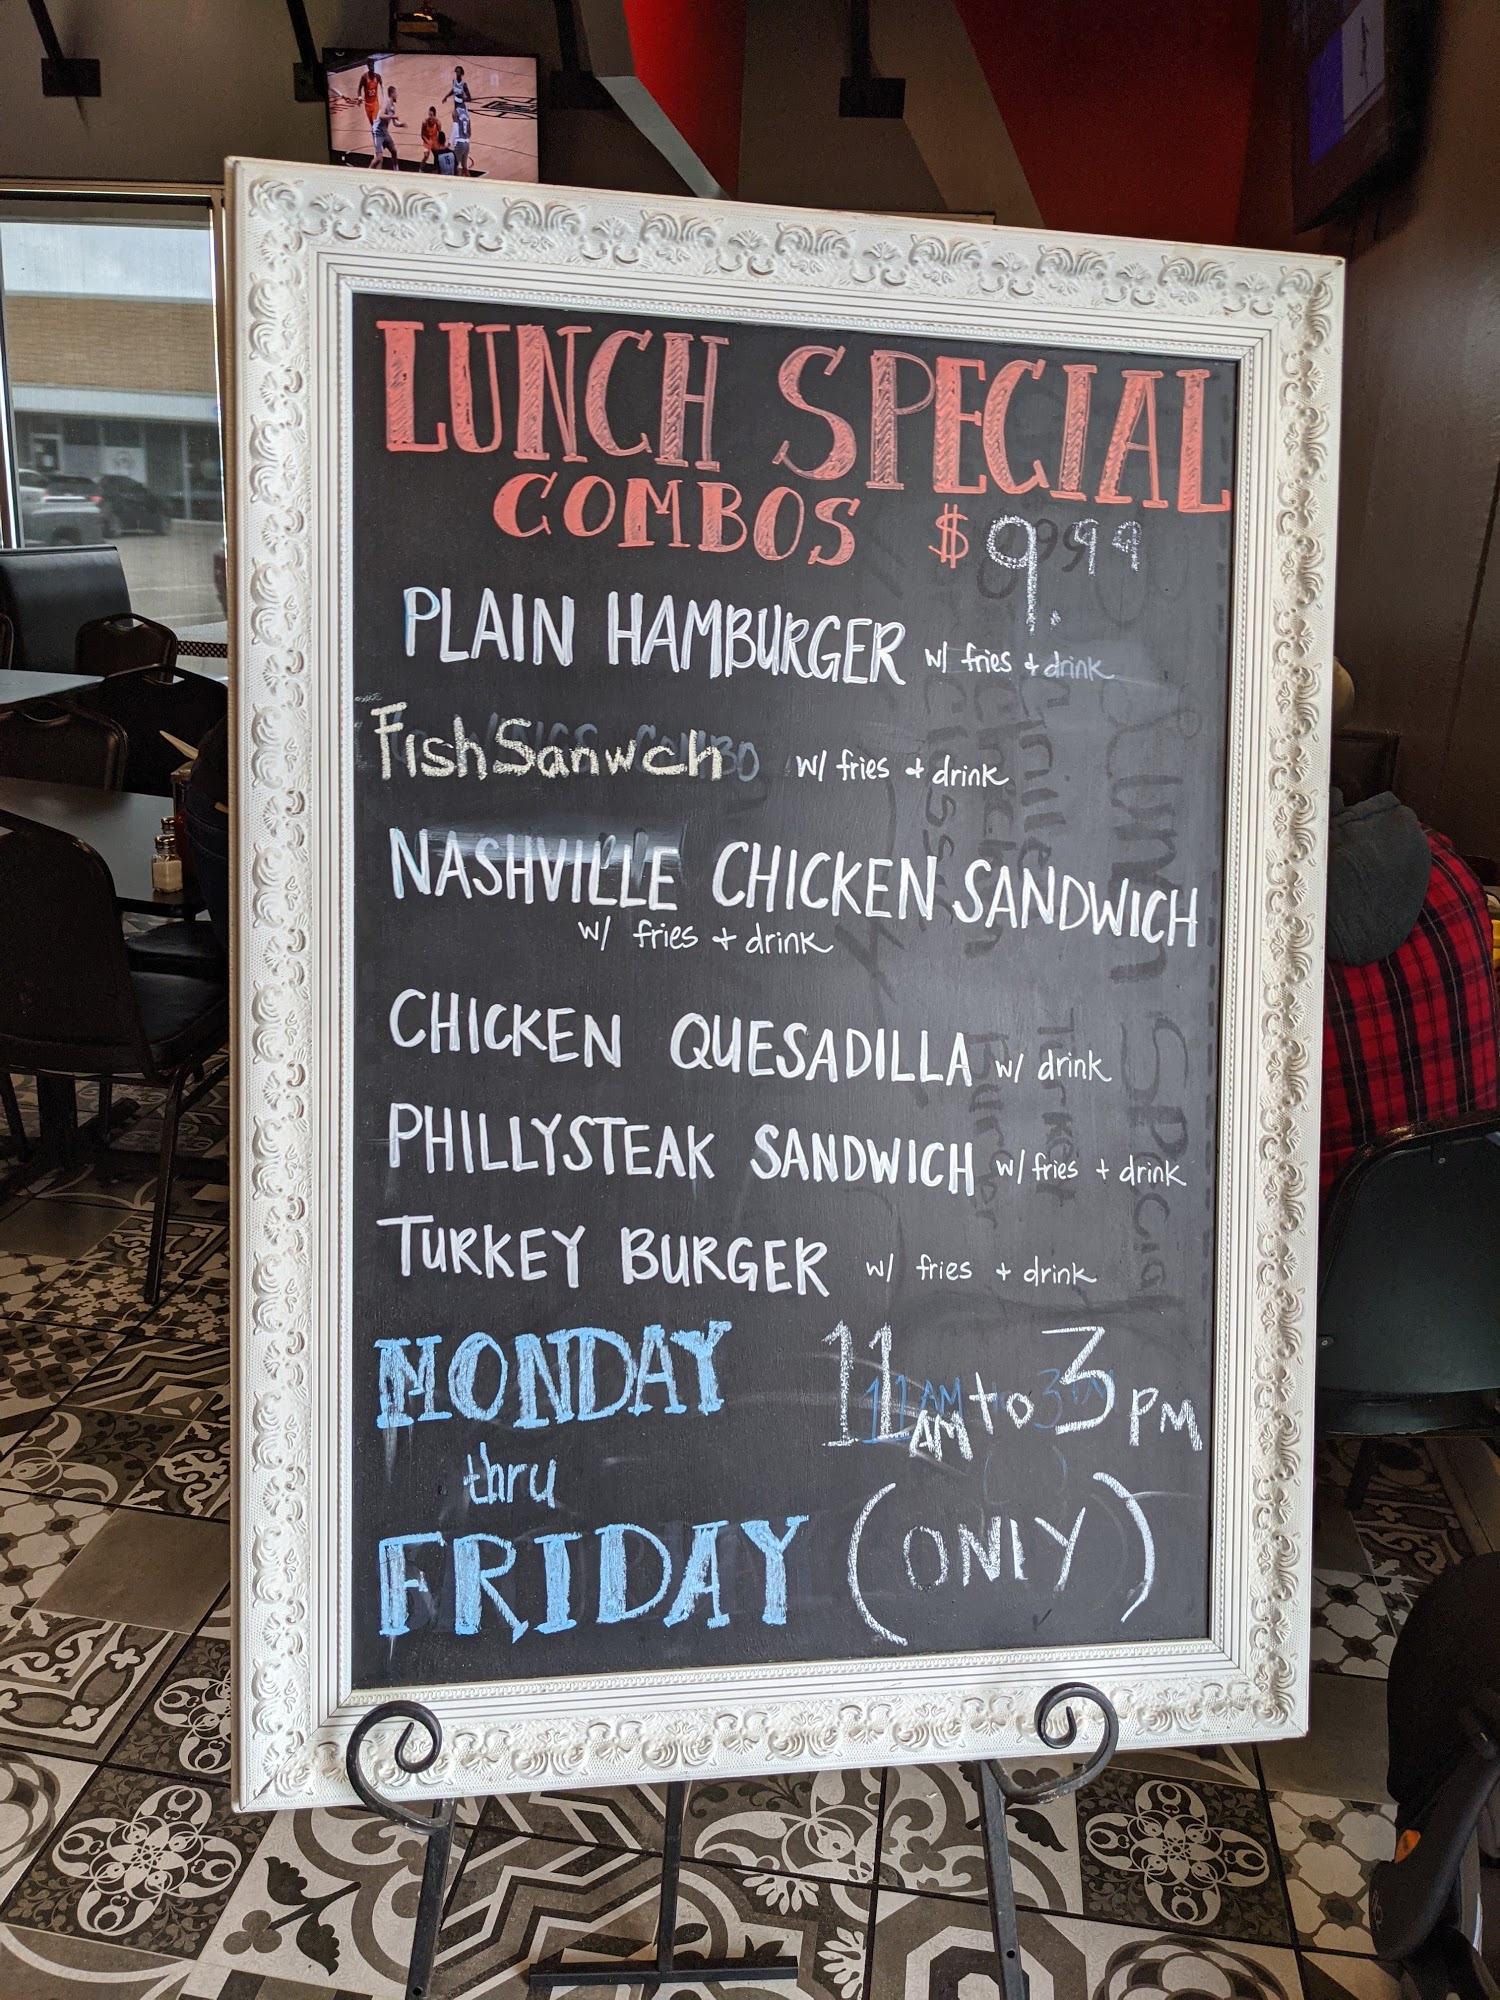 LUNCH SPECIAL
COMBOS $9.99
PLAIN HAMBURGER w/ fries + drink
FishSanwch w/ fries + drink
NASHVILLE CHICKEN SANDWICH
w/ fries + drink
CHICKEN QUESADILLA w/ drink
PHILLYSTEAK SANDWICH w/ fries + drink
TURKEY BURGER w/ fries + drink
MONDAY 11 AM to 3 PM
thru
FRIDAY (ONLY)